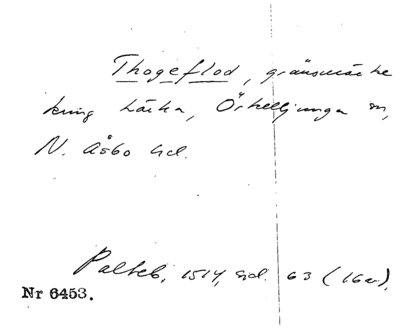 Thogeflod, gränsmärke
kring Lärka, Örkelljunga sn,
N. Åsbo hd.
Palteb. 1514, sid. 63 (16a).
Nr 6453.